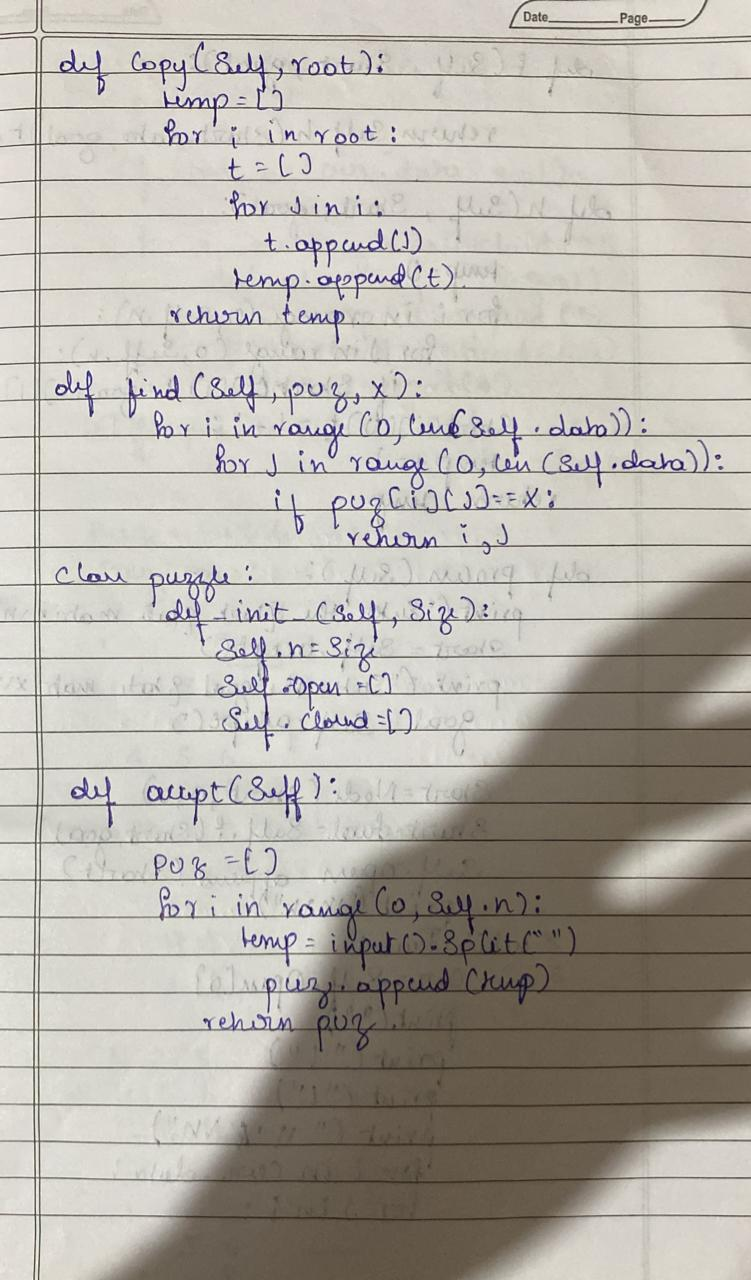 Date Page
def Copy(Self, root):
temp = []
for i in root:
t = []
for J in i:
t.append(J)
temp.append(t)
return temp
def find (Self, puz, x):
for i in range (0, len(Self.data)):
for J in range (0, len (Self.data)):
if puz[i][J]==x:
return i,J
Class puzzle:
def _init_ (Self, Size):
Self.n = Size
Self.Open = []
Self.closed = []
def accept(Self):
puz = []
for i in range (0, Self.n):
temp = input().Split(" ")
puz.append (temp)
return puz.